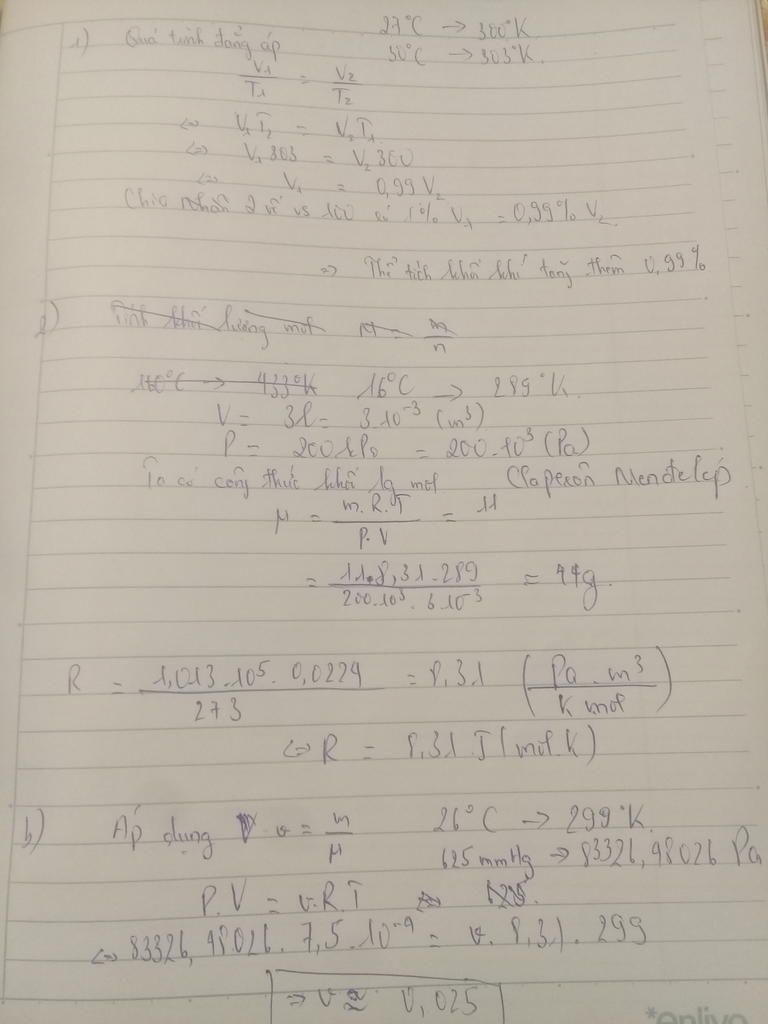 27°C → 300°K
1) Quá trình đẳng áp
30°C → 303°K.
V1/T1 = V2/T2
⇔ V1 T2 = V2 T1
⇔ V1 303 = V2 300
⇔ V1 = 0,99 V2
Chia nhân 2 vế vs 100 có 1% V1 = 0,99% V2
⇒ Thể tích khối khí tăng thêm 0,99%
2) Tính khối lượng mol M = m/n
160°C → 433°K 16°C → 289°K.
V = 3l = 3.10⁻³ (m³)
P = 200kPa = 200.10³ (Pa)
Ta có công thức khối lg mol Claperôn Mendeleép
μ = m.R.T / P.V = 11
= 11.8,31.289 / 200.10³. 3.10⁻³ = 44g.
R = 1,013.10⁵. 0,0224 / 273 = 8,31 (Pa.m³ / K mol)
⇔ R = 8,31 J (mol.K)
b) Áp dụng v = m/μ 26°C → 299°K.
625 mmHg → 83326,98026 Pa
P.V = v.R.T
⇔ 83326,98026. 7,5.10⁻⁴ = v. 8,31. 299
⇒ v ≈ 0,025
*onlive